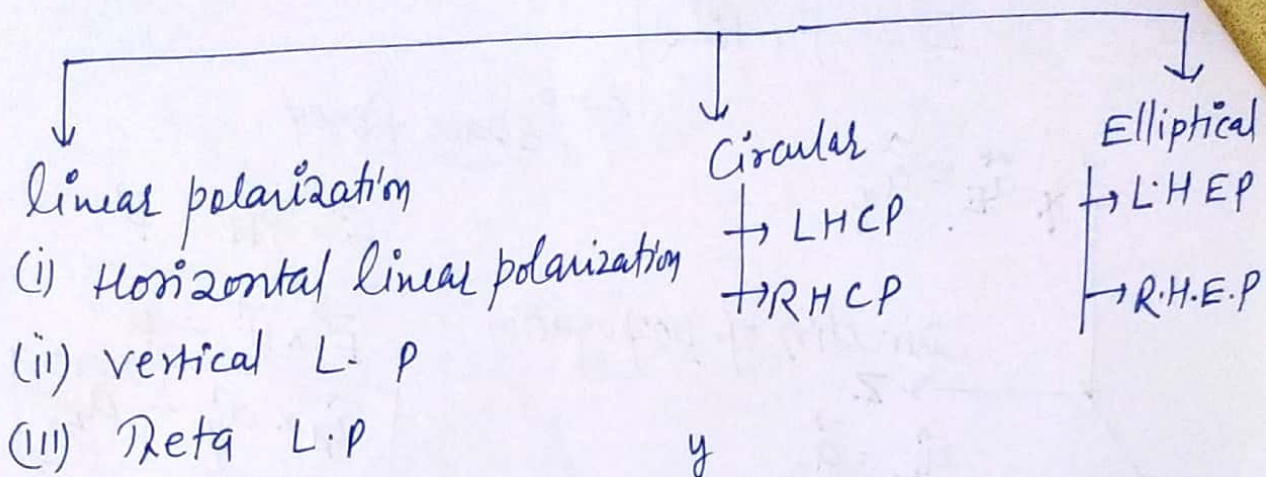 linear polarization
(i) Horizontal linear polarization
(ii) vertical L. P
(iii) Theta L.P
Circular
→ LHCP
→ RHCP
Elliptical
→ L.H E P
→ R.H.E.P
y